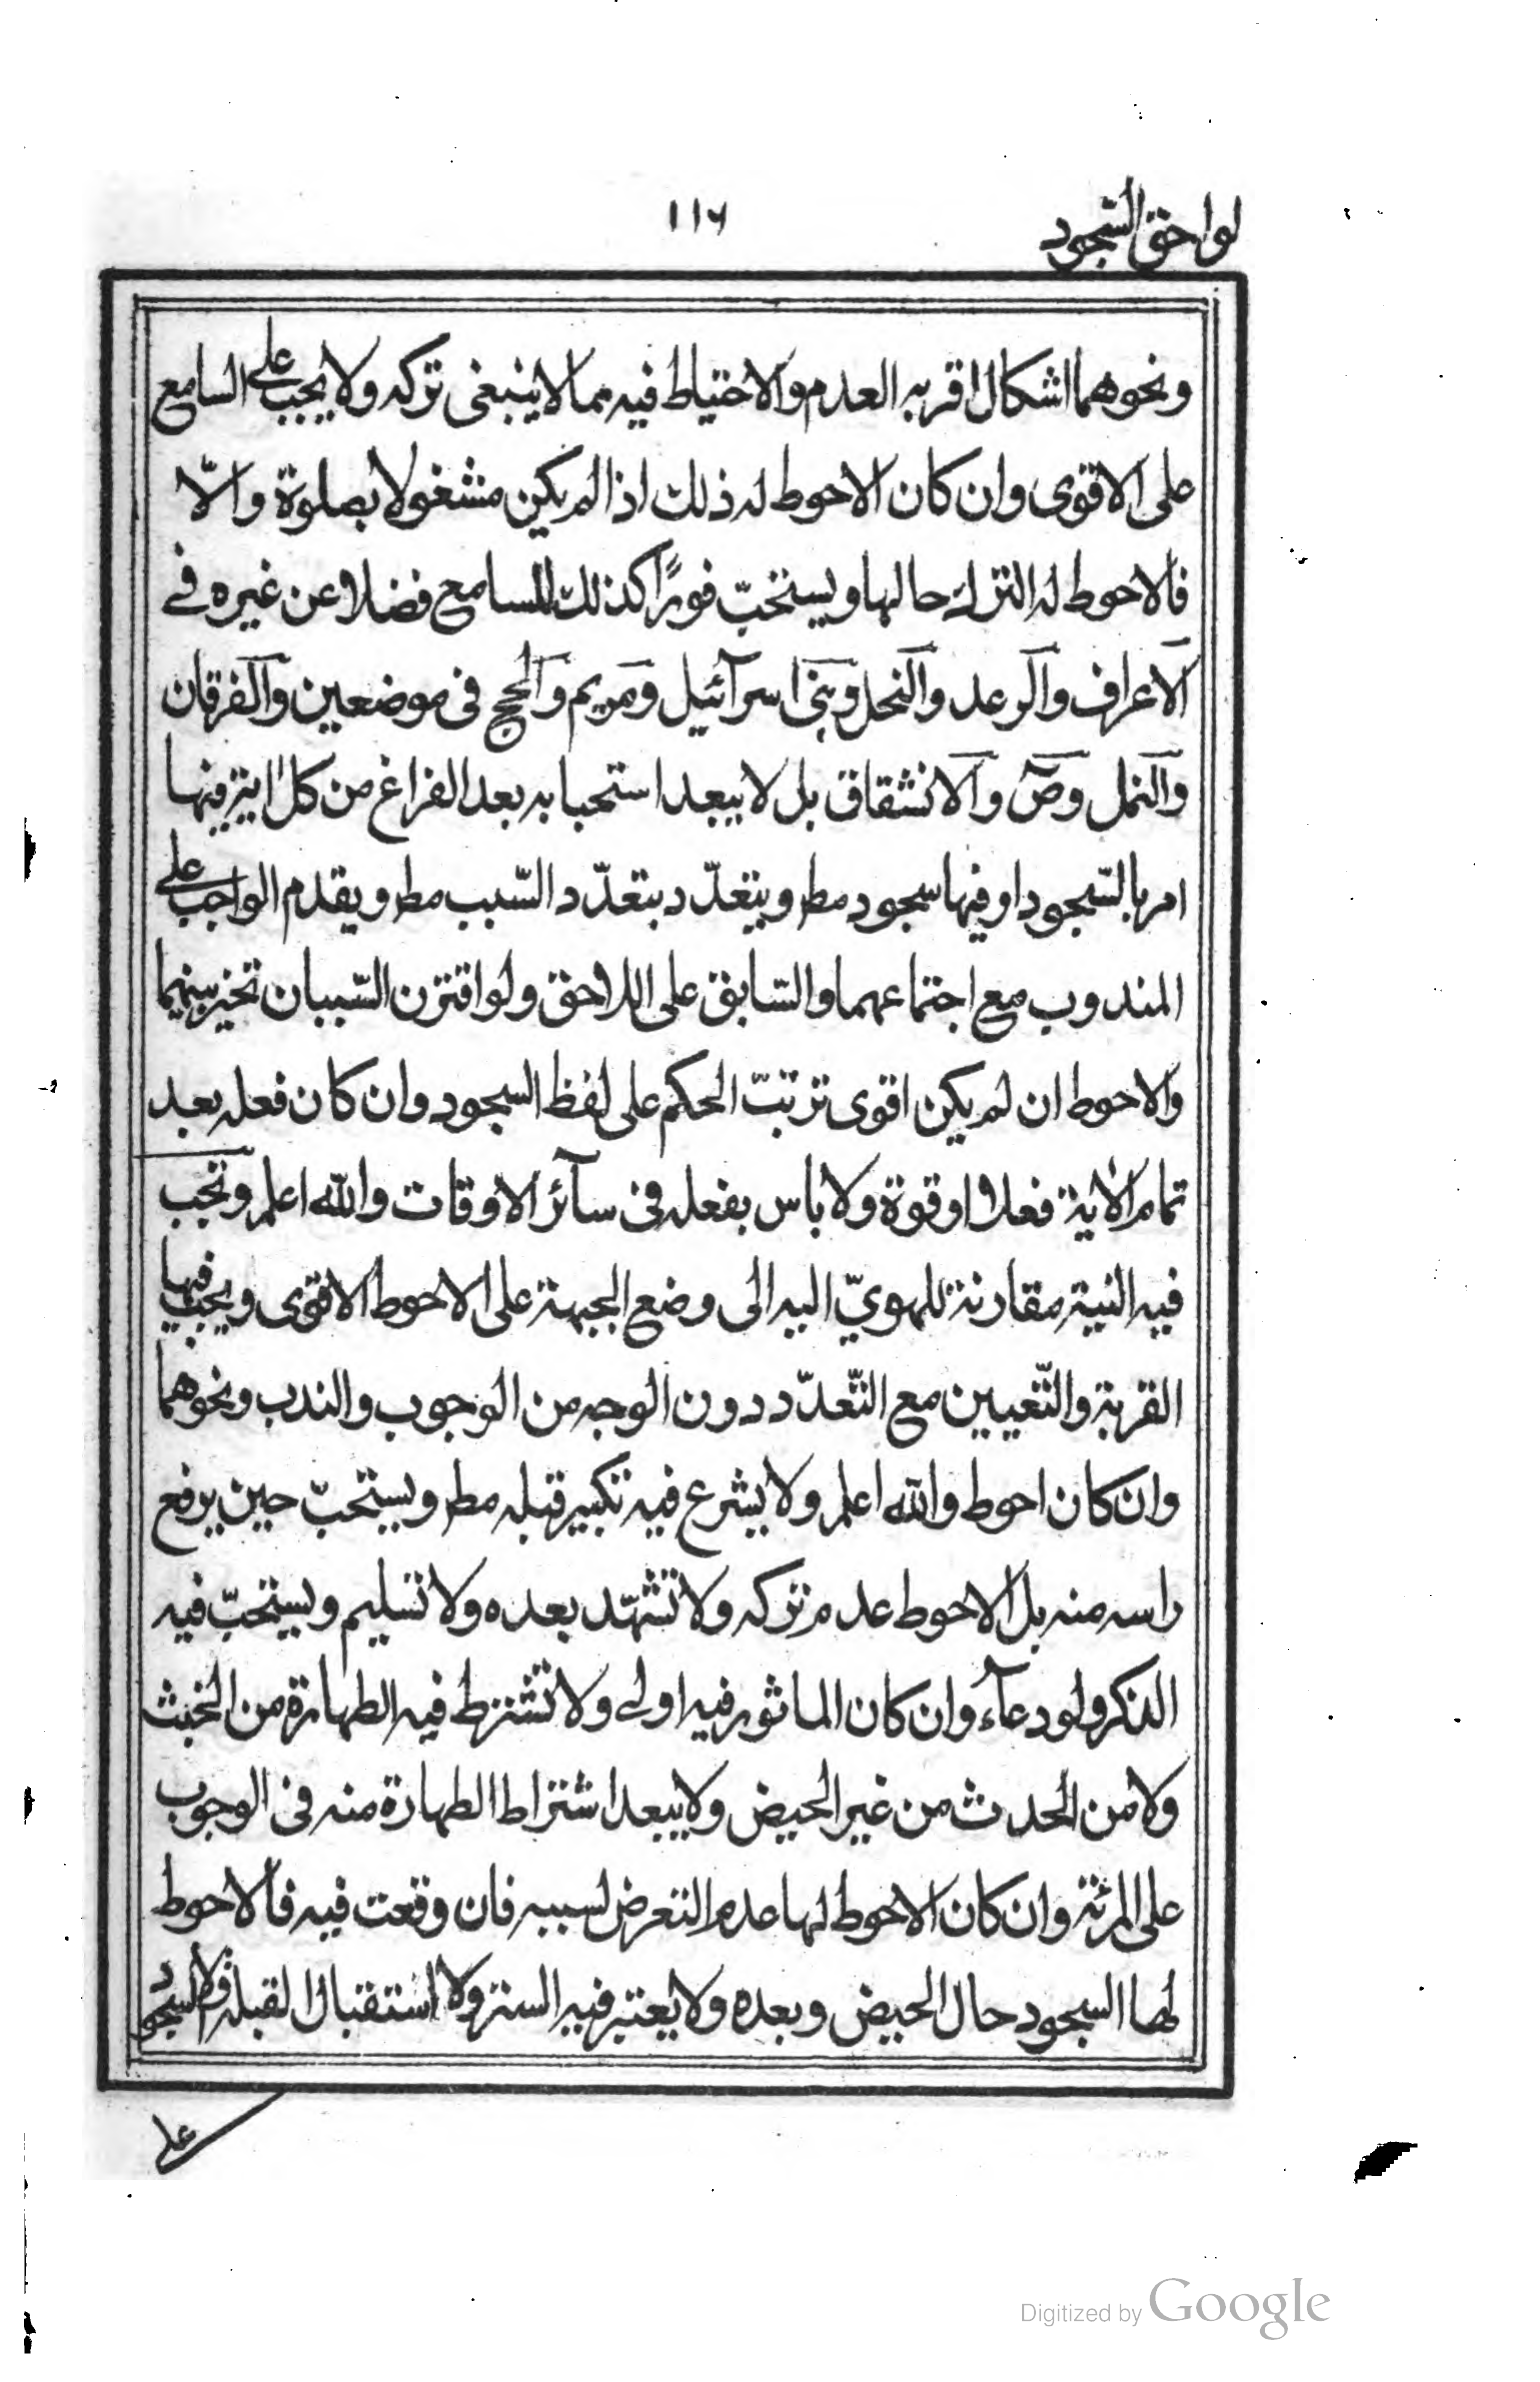 لواحق السّجود
١١٦
ونحوهما اشكال اقربه العدم والاحتياط فيه مما لا ينبغى تركه ولا يجب على السامع
على الاقوى وان كان الاحوط له ذلك اذا لم يكن مشغولا بصلوة والّا
فالاحوط له الترك حالها ويستحبّ فورًا كذلك للسامع فضلا عن غيره فے
الاعراف والرعد والنحل وبنى اسرآئيل ومريم والحج فى موضعين والفرقان
والنمل وص والانشقاق بل لا يبعد استحبابه بعد الفراغ من كل اية فيها
امر بالسّجود او فيها سجود مطر ويتعدّد بتعدّد السّبب مطر ويقدم الواجب على
المندوب مع اجتماعهما والسّابق على اللاحق ولو اقترن السّببان تخير بينهما
والاحوط ان لم يكن اقوى ترتبّ الحكم على لفظ السجود وان كان فعله بعد
تمام الاية فعلا او قوة ولا باس بفعله فى سآئر الاوقات والله اعلم وتجب
فيه النية مقارنة للهويّ اليه الى وضع الجبهة على الاحوط الاقوى ويجب فيها
القربة والتّعيين مع التّعدّد دون الوجه من الوجوب والندب ونحوهما
وان كان احوط والله اعلم ولا يشرع فيه تكبير قبله مطر ويستحبّ حين يرفع
راسه منه بل الاحوط عدم تركه ولا تشهّد بعده ولا تسليم ويستحبّ فيه
الذكر ولو دعآء وان كان الماثور فيه اولے ولا تشترط فيه الطهارة من الخبث
ولا من الحدث من غير الحيض ولا يبعد اشتراط الطهارة منه فى الوجوب
على المرئة وان كان الاحوط لها عدم التعرض لسببه فان وقعت فيه فالاحوط
لها السجود حال الحيض وبعده ولا يعتبر فيه الستر ولا استقبال القبلة ولا السجود
على
Digitized by Google